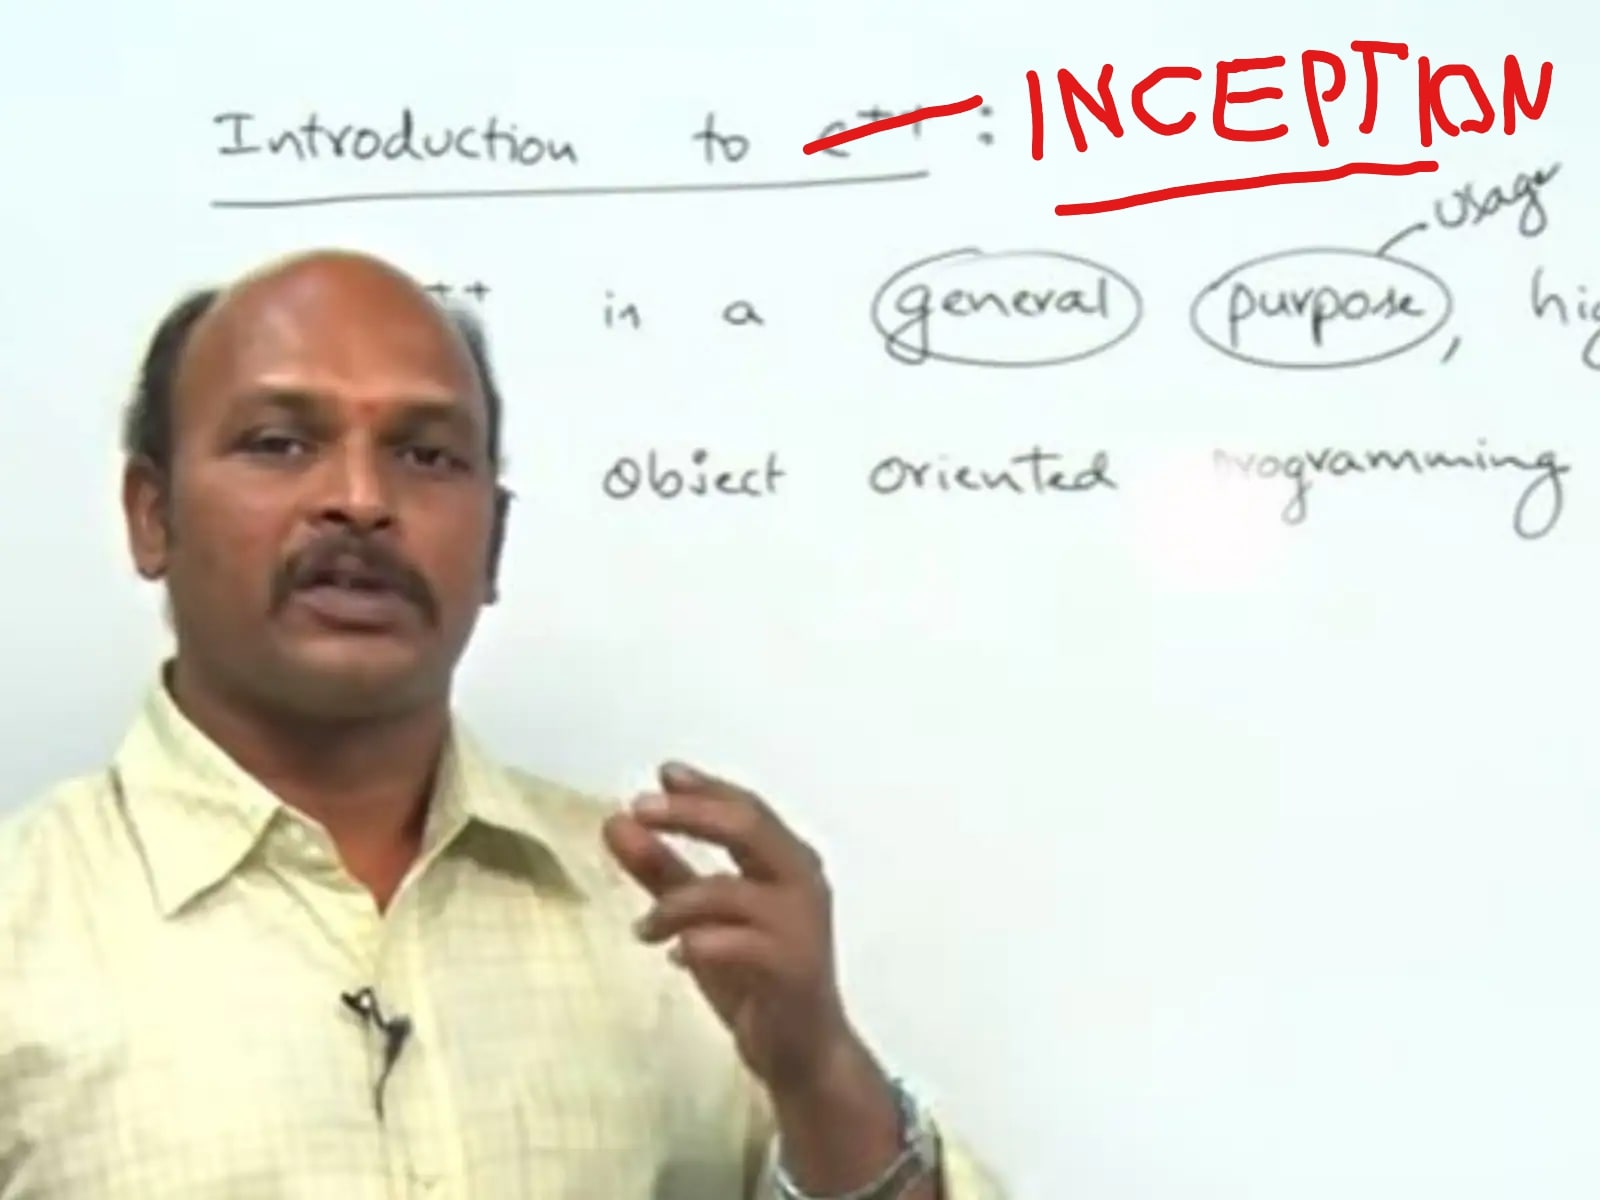 Introduction to c++ : INCEPTION
usage
++ is a general purpose,
Object oriented programming